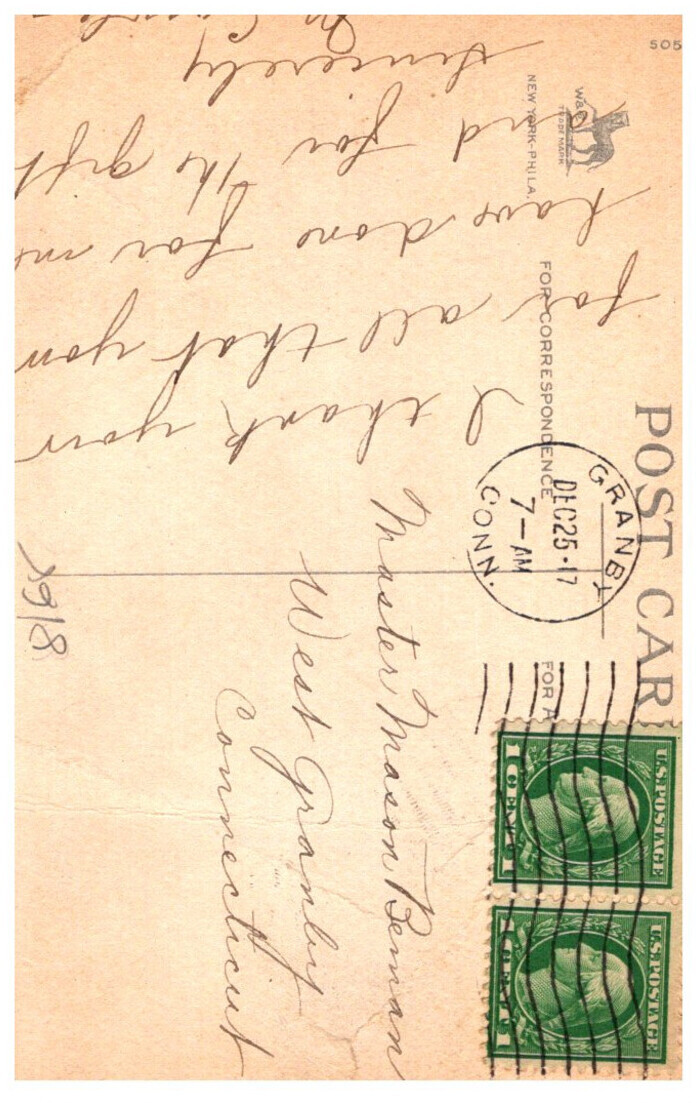 505
POST CAR
W&B
TRADE MARK
NEW YORK-PHILA.
FOR CORRESPONDENCE
FOR A
GRANBY
DEC 25 · 17
7 - AM
CONN.
U.S. POSTAGE
1 CENT 1
U.S. POSTAGE
1 CENT 1
Master Mason Beman
West Granby
Connecticut
I thank you
for all that you
have done for me
and for the gift
Sincerely